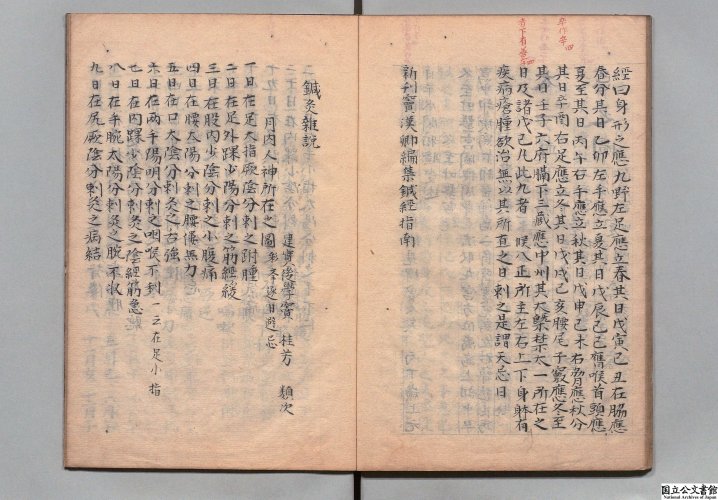 經曰身形之應九野左足應立春其日戊寅己丑在脇應
春分其日乙卯左手應立夏其日戊辰己巳膺喉首頭應
夏至其日丙午右手應立秋其日戊申己未右脇應秋分
其日辛酉右足應立冬其日戊戌己亥腰尾下竅應冬至
其日壬子六府膈下三藏應中州其大禁大一所在之
日及諸戊己凡此九者 候八正所主左右上下身體有
疾病癰腫欲治無以其所直之日刺之是謂天忌日
新刊竇漢卿編集鍼經指南
鍼灸雜說
建安後學竇 桂芳 類次
一月內人神所在之圖 日避忌
一日在足大指厥陰分刺之跗腫
二日在足外踝少陽分刺之筋經緩
三日在股內少陰分刺之小腹痛
四日在腰太陽分刺之腰僂無力
五日在口太陰分刺灸之舌強
六日在兩手陽明分刺之咽喉不利 一云在足小指
七日在內踝少陰分刺灸之陰經筋急
八日在手腕太陽分刺灸之腕不收
九日在尻厥陰分刺灸之病結
国立公文書館
National Archives of Japan